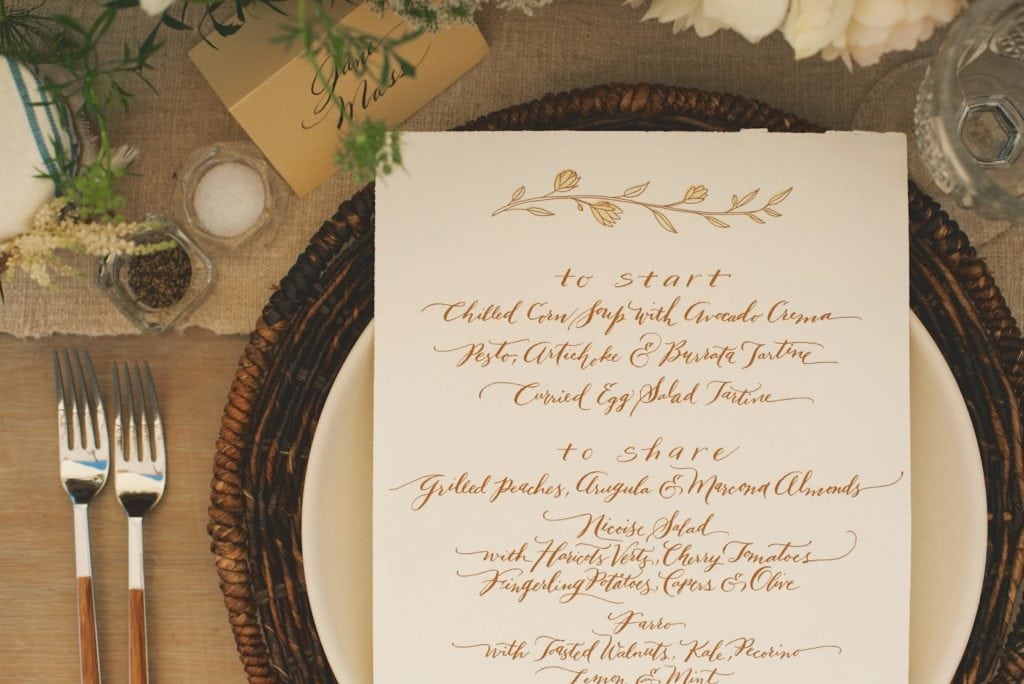 Jane
Mass
to start
Chilled Corn Soup with Avocado Crema
Pesto, Artichoke & Burrata Tartine
Curried Egg Salad Tartine
to share
Grilled Peaches, Arugula & Marcona Almonds
Nicoise Salad
with Haricots Verts, Cherry Tomatoes
Fingerling Potatoes, Capers & Olive
Farro
with Toasted Walnuts, Kale, Pecorino
Lemon & Mint